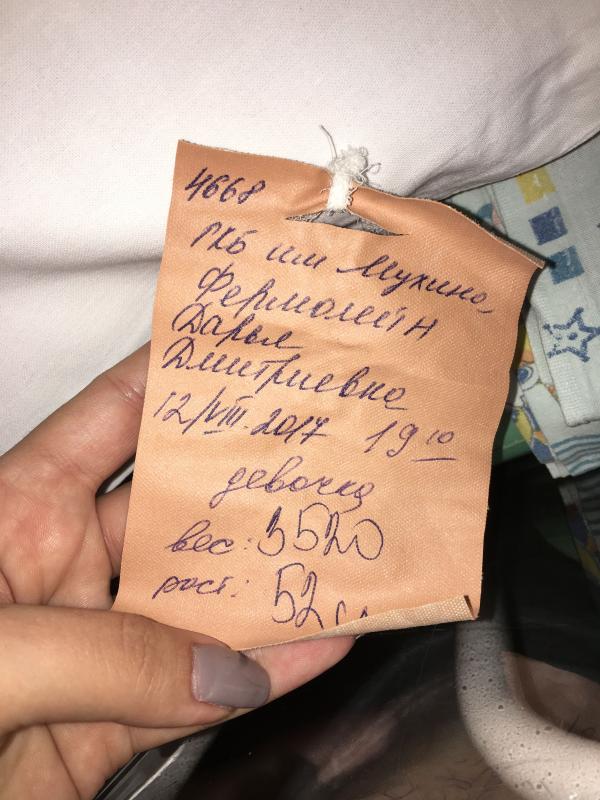 4668
ГКБ им Мухина
Фермолейн
Дарья
Дмитриевна
12/VIII.2017 19 10
девочка
вес: 3520
рост: 52 см